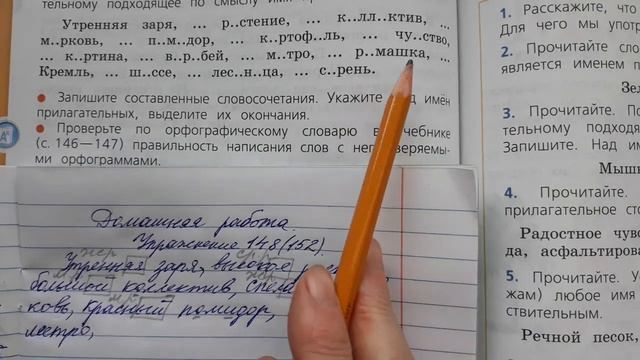 тельному подходящее по смыслу имя
Утренняя заря, ... р..стение, ... к..лл..ктив, ...
м..рковь, ... п..м..дор, ... к..ртоф..ль, ... чу..ство,
... к..ртина, ... в..р..бей, ... м..тро, ... р..машка, ...
Кремль, ... ш..ссе, ... лес..н..ца, ... с..рень.
• Запишите составленные словосочетания. Укажите над имён
прилагательных, выделите их окончания.
• Проверьте по орфографическому словарю в учебнике
(с. 146—147) правильность написания слов с непроверяемы-
ми орфограммами.
Домашная работа.
Упражнение 148 (152).
Утренняя заря, высокое
большой коллектив,
ковь, красный помидор,
метро,
1. Расскажите, что
Для чего мы упот
2. Прочитайте сло
является именем п
Зел
3. Прочитайте. По
тельному подходя
Запишите. Над им
Мышк
4. Прочитайте.
прилагательное сто
Радостное чувс
да, асфальтирова
5. Прочитайте. Уч
жам) любое имя
ствительным.
Речной песок,